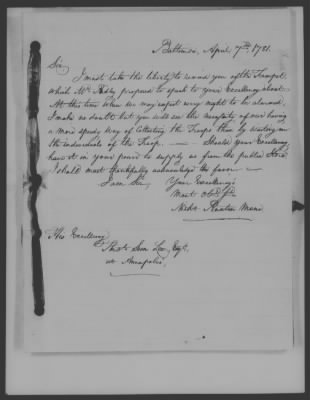 Baltimore, April 7th. 1781.
Sir
I must take the liberty to remind you of the Trumpet
which Mr. proposed to speak to your Excellency about
At this time when we may expect every night to be alarmed,
I make no doubt but you will see the necessity of our having
a more speedy way of collecting the Troops than by waiting on
the individuals of the Troop. — Should your Excellency
have it in your power to supply us from the public Store
I should most thankfully acknowledge the favor —
I am Sir, Your Excellency's
Most Obt. St.
Nichs. Ruxton Moore
His Excellency
Thos. Sim Lee, Esqr.
at Annapolis.